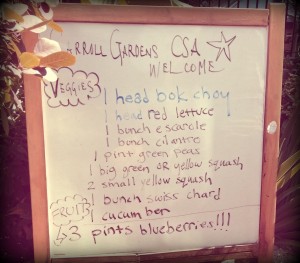 rroll Gardens CSA
WELCOME
VEGGIES
1 head bok choy
1 head red lettuce
1 bunch escarole
1 bunch cilantro
1 pint green peas
1 big green OR yellow squash
2 small yellow squash
1 bunch swiss chard
1 cucumber
FRUITS
3 pints blueberries!!!